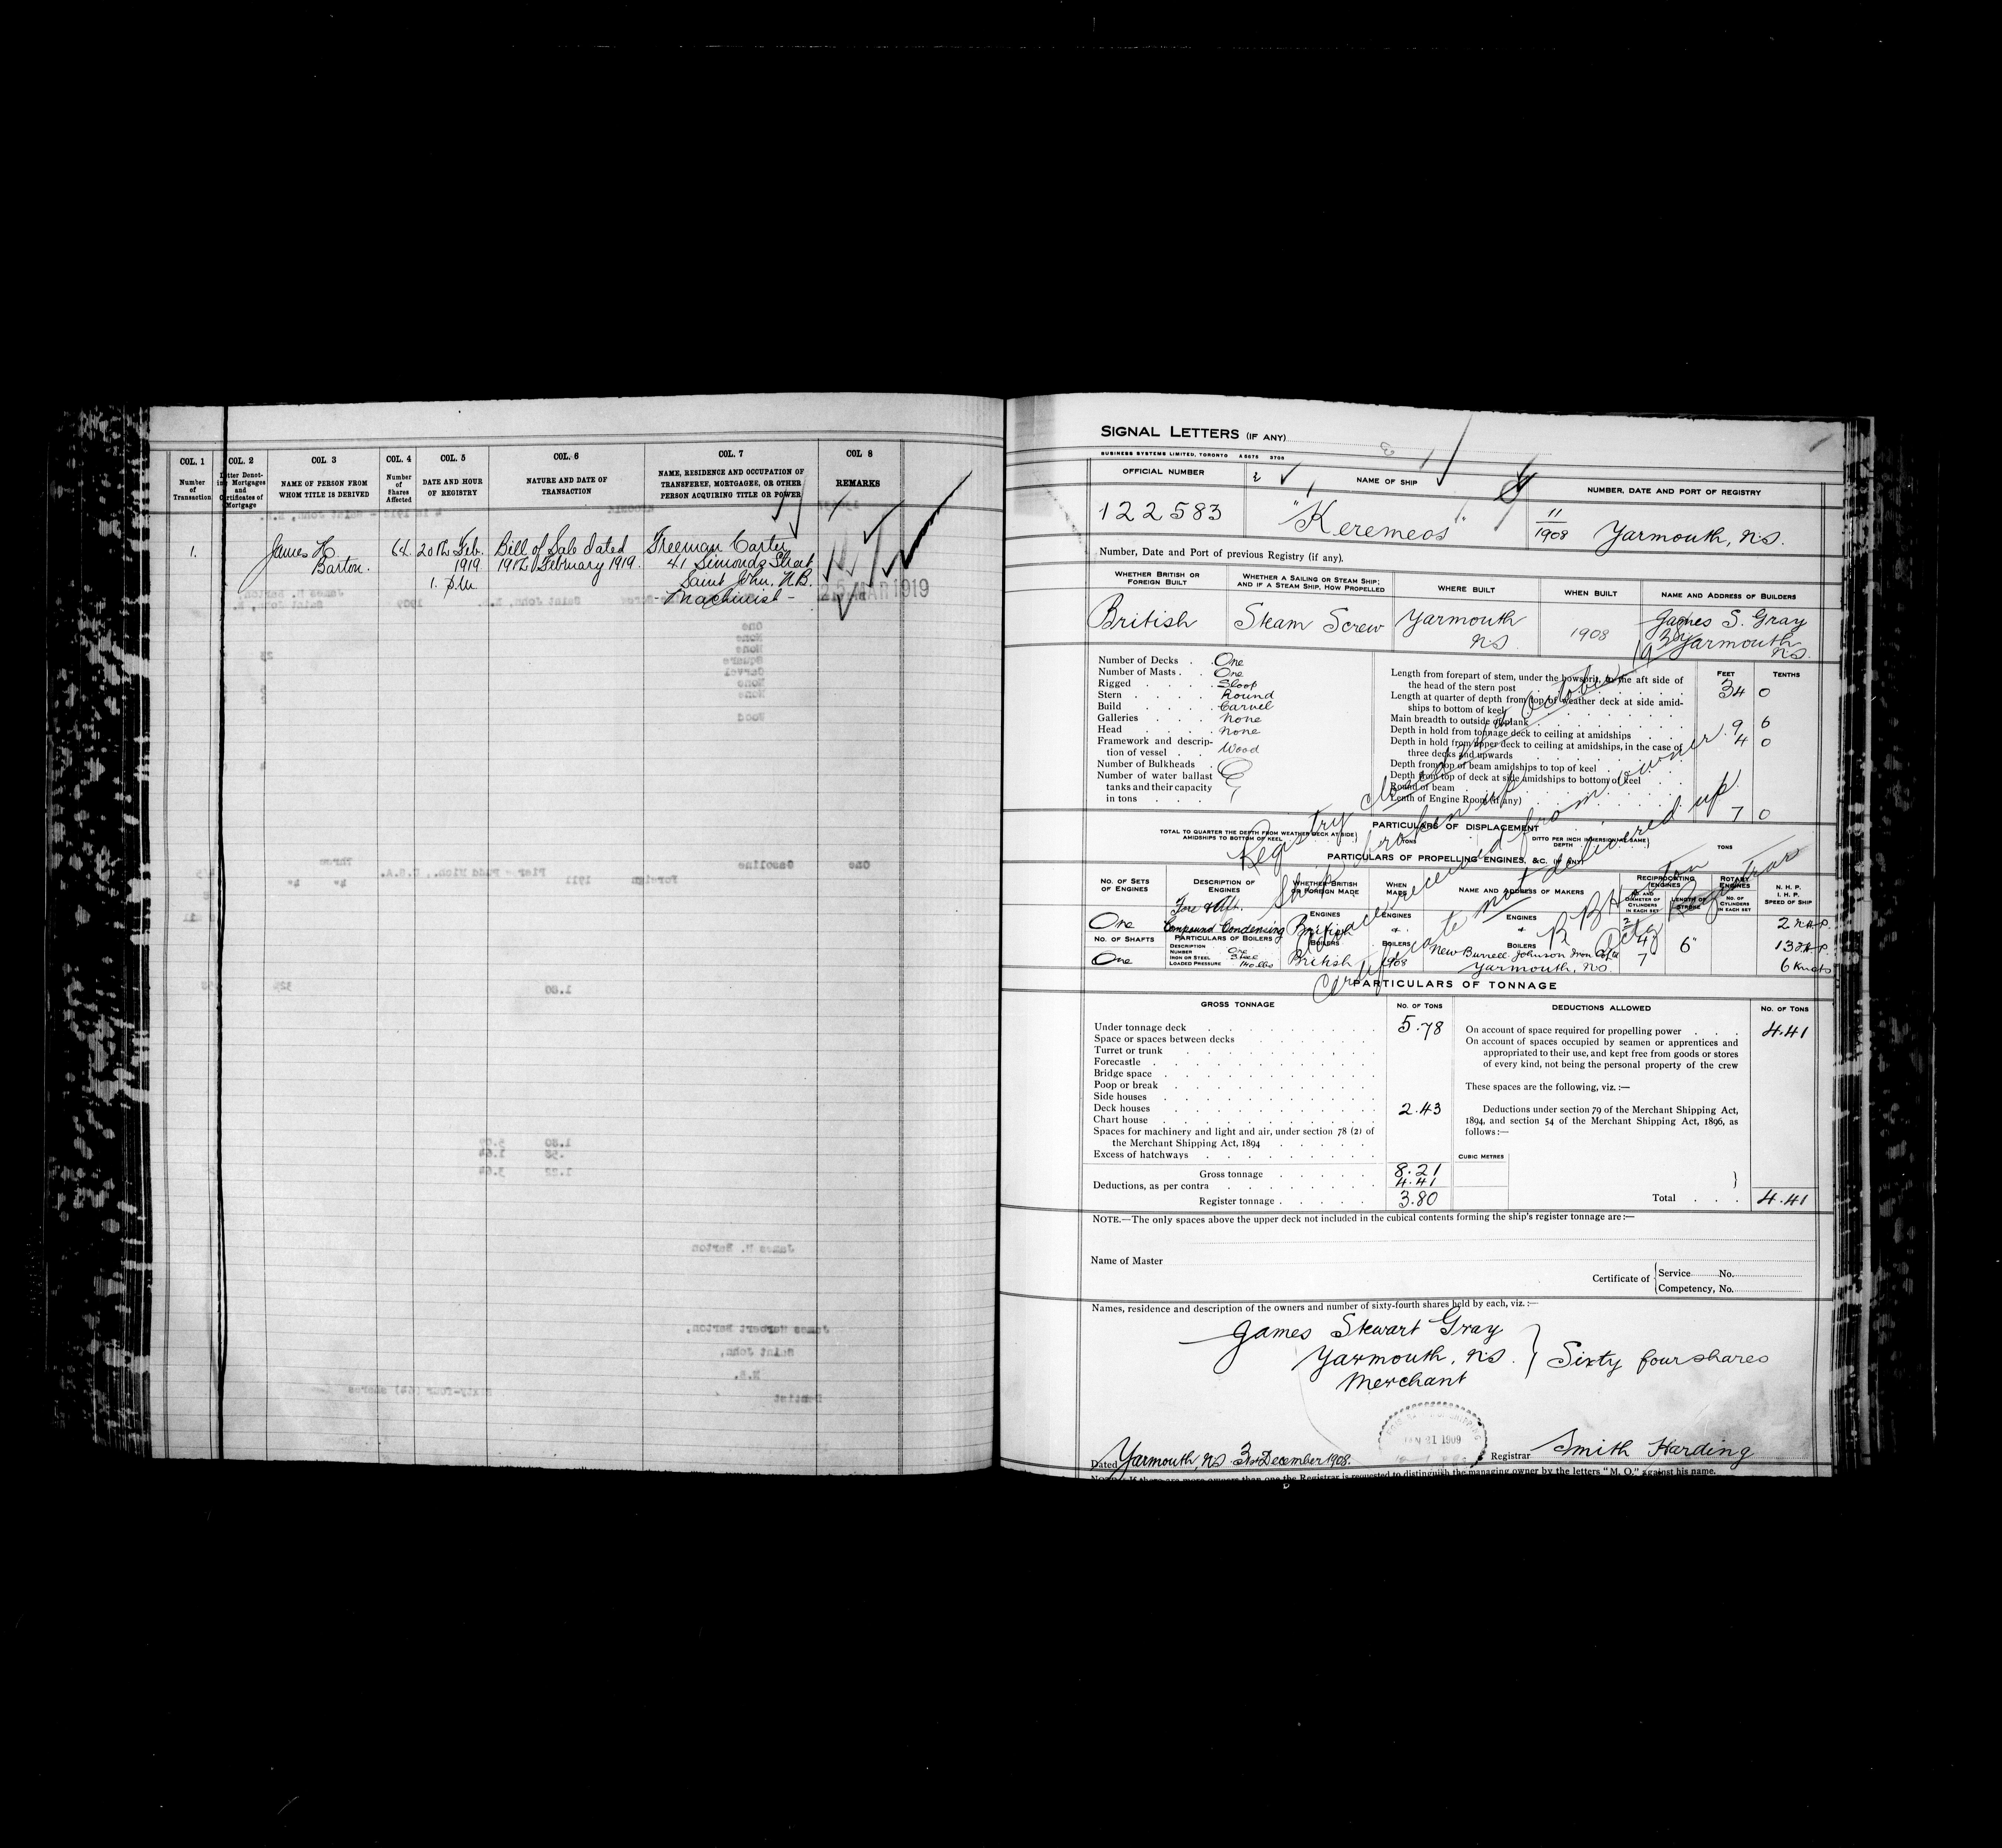 COL. 1
COL. 2
COL. 3
COL. 4
COL. 5
COL. 6
COL. 7
COL 8
Number of Transaction
NAME OF PERSON FROM WHOM TITLE IS DERIVED
Number of Shares Affected
DATE AND HOUR OF REGISTRY
NATURE AND DATE OF TRANSACTION
NAME, RESIDENCE AND OCCUPATION OF TRANSFEREE, MORTGAGEE, OR OTHER PERSON ACQUIRING TITLE OR POWER
REMARKS
1. James H. 64 20th Feb. Bill of Sale dated Freeman Carter
Barton. 1919 19th February 1919. 41 Simonds Street
Saint John, N.B.
- Machinist -
MAR 1919
SIGNAL LETTERS (IF ANY)
BUSINESS SYSTEMS LIMITED, TORONTO
OFFICIAL NUMBER
NAME OF SHIP
NUMBER, DATE AND PORT OF REGISTRY
122583
"Keremeos"
11/1908 Yarmouth, N.S.
Number, Date and Port of previous Registry (if any).
WHETHER BRITISH OR FOREIGN BUILT
WHETHER A SAILING OR STEAM SHIP; AND IF A STEAM SHIP, HOW PROPELLED
WHERE BUILT
WHEN BUILT
NAME AND ADDRESS OF BUILDERS
British
Steam Screw
Yarmouth N.S.
1908
James S. Gray
Yarmouth N.S.
Number of Decks . . One
Number of Masts . . One
Rigged . . . . Sloop
Stern . . . . Round
Build . . . . Carvel
Galleries . . . None
Head . . . . None
Framework and descrip-
tion of vessel . . Wood
Number of Bulkheads .
Number of water ballast
tanks and their capacity
in tons . . .
FEET TENTHS
Length from forepart of stem, under the bowsprit, to the aft side of
the head of the stern post 34 0
Length at quarter of depth from top of weather deck at side amid-
ships to bottom of keel
Main breadth to outside of plank 9 6
Depth in hold from tonnage deck to ceiling at amidships 4 0
Depth in hold from upper deck to ceiling at amidships, in the case of
three decks and upwards
Depth from top of beam amidships to top of keel
Depth from top of deck at side amidships to bottom of keel
Round of beam
Lenth of Engine Room (if any) 7 0
Registry closed October
Ship broken up
Advice received from owner
Certificate not delivered up
Registrar
PARTICULARS OF DISPLACEMENT
TOTAL TO QUARTER THE DEPTH FROM WEATHER DECK AT SIDE AMIDSHIPS TO BOTTOM OF KEEL
TONS
DITTO PER INCH IMMERSION AT SAME DEPTH
TONS
PARTICULARS OF PROPELLING ENGINES, &C. (IF ANY)
NO. OF SETS OF ENGINES
DESCRIPTION OF ENGINES
WHETHER BRITISH OR FOREIGN MADE
WHEN MADE
NAME AND ADDRESS OF MAKERS
RECIPROCATING ENGINES
NO. AND DIAMETER OF CYLINDERS IN EACH SET
LENGTH OF STROKE
ROTARY ENGINES
NO. OF CYLINDERS IN EACH SET
N. H. P.
I. H. P.
SPEED OF SHIP
Fore & Aft.
ENGINES
ENGINES
ENGINES
One Compound Condensing British & & 2 4 6" 2 N.H.P.
NO. OF SHAFTS
PARTICULARS OF BOILERS
BOILERS
BOILERS
BOILERS
DESCRIPTION
NUMBER One
IRON OR STEEL Steel
LOADED PRESSURE 140 lbs
One British 1908 New Burrell Johnson Iron Co Ltd 7
Yarmouth, N.S. 6 Knots
PARTICULARS OF TONNAGE
GROSS TONNAGE
NO. OF TONS
DEDUCTIONS ALLOWED
NO. OF TONS
Under tonnage deck 5.78
Space or spaces between decks
Turret or trunk
Forecastle
Bridge space
Poop or break
Side houses
Deck houses 2.43
Chart house
Spaces for machinery and light and air, under section 78 (2) of
the Merchant Shipping Act, 1894
Excess of hatchways
Gross tonnage 8.21
Deductions, as per contra 4.41
Register tonnage 3.80
On account of space required for propelling power 4.41
On account of spaces occupied by seamen or apprentices and
appropriated to their use, and kept free from goods or stores
of every kind, not being the personal property of the crew
These spaces are the following, viz. :—
Deductions under section 79 of the Merchant Shipping Act,
1894, and section 54 of the Merchant Shipping Act, 1896, as
follows:—
CUBIC METRES
Total 4.41
NOTE.—The only spaces above the upper deck not included in the cubical contents forming the ship's register tonnage are :—
Name of Master
Certificate of
Service No.
Competency, No.
Names, residence and description of the owners and number of sixty-fourth shares held by each, viz. :—
James Stewart Gray
Yarmouth, N.S. } Sixty four shares
Merchant
JAN 21 1909
Dated Yarmouth, NS December 1908. Registrar Smith Harding
more owners than one the Registrar is requested to distinguish the managing owner by the letters "M. O." against his name.